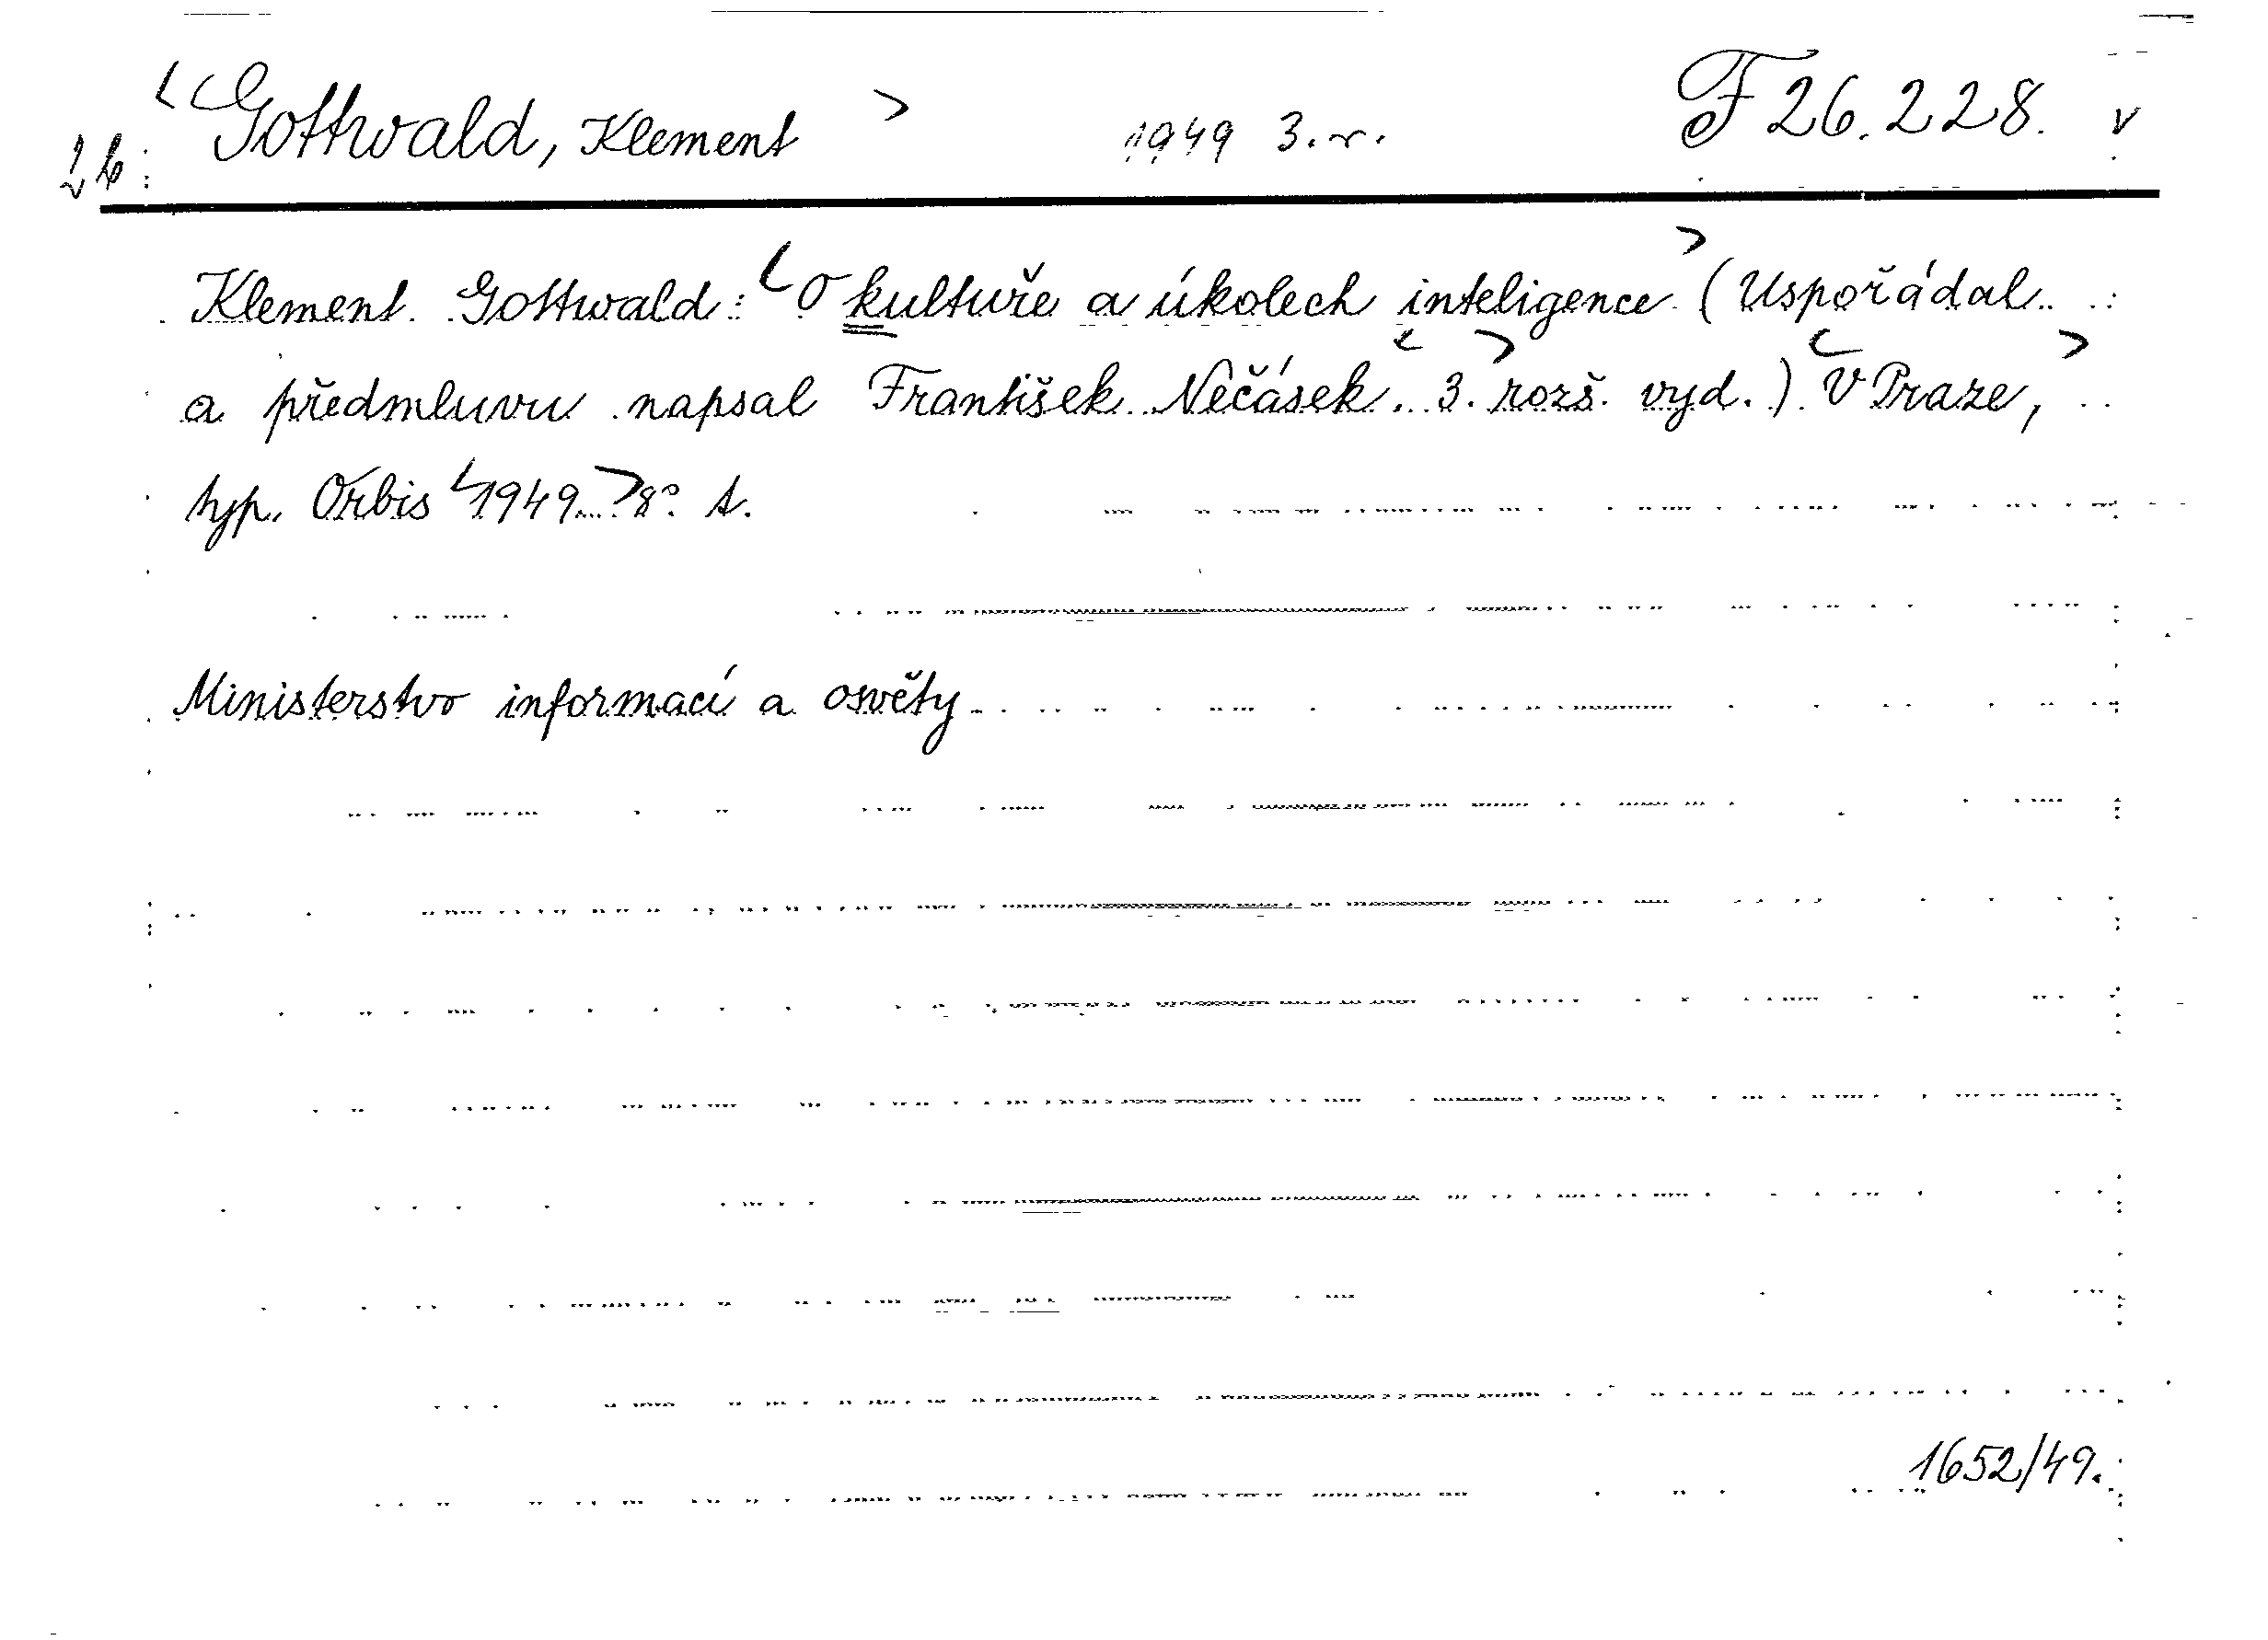 <Gottwald, Klement> 1949 3.r. F 26.228. v
Klement Gottwald: <O kultuře a úkolech inteligence> (Uspořádal
a předmluvu napsal František Nečásek. <3.> rozš. vyd.) <V Praze,>
typ. Orbis <1949> 8° s.
Ministerstvo informací a osvěty
1652/49.